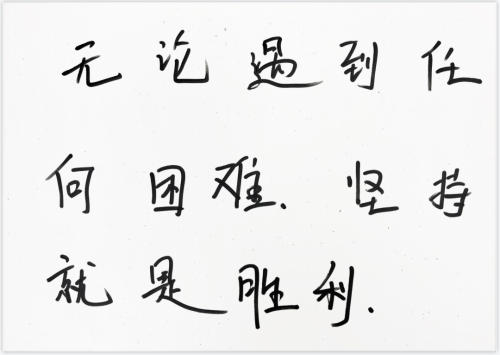 无论遇到任
何困难.坚持
就是胜利.